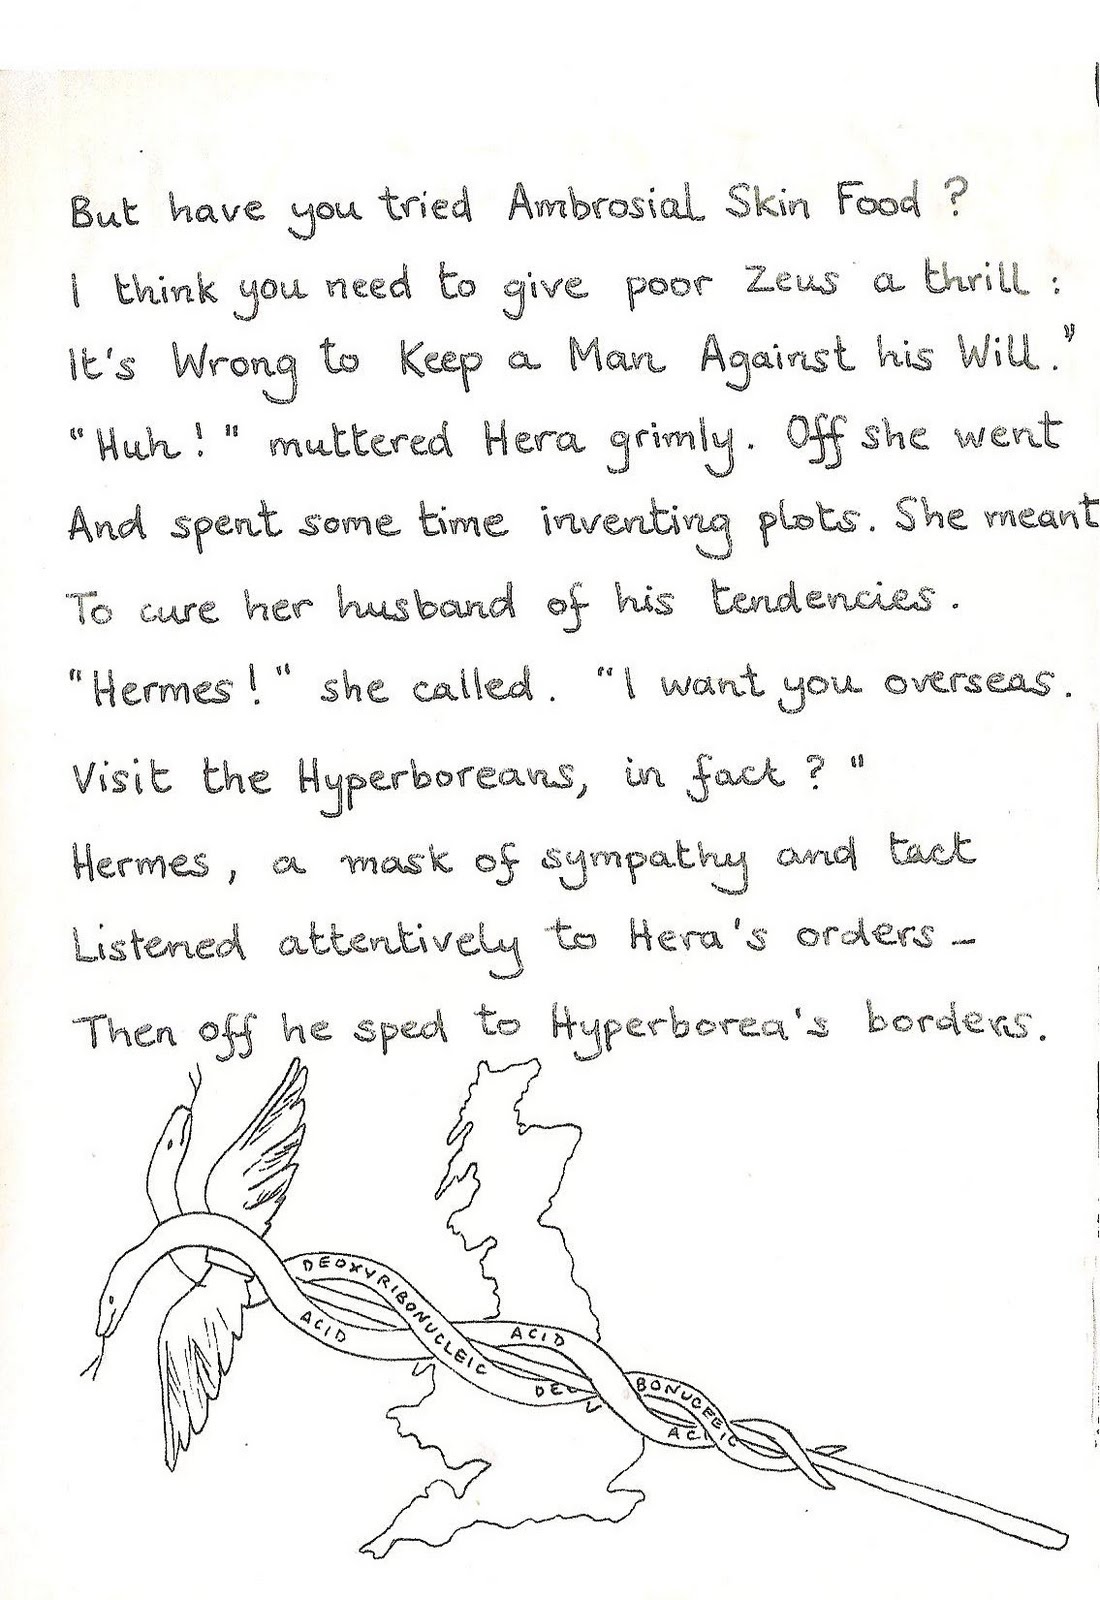 But have you tried Ambrosial Skin Food ?
I think you need to give poor Zeus a thrill :
It's Wrong to Keep a Man Against his Will."
"Huh ! " muttered Hera grimly. Off she went
And spent some time inventing plots. She meant
To cure her husband of his tendencies.
"Hermes ! " she called. "I want you overseas.
Visit the Hyperboreans, in fact ? "
Hermes, a mask of sympathy and tact
Listened attentively to Hera's orders –
Then off he sped to Hyperborea's borders.
DEOXYRIBONUCLEIC
ACID
ACID
DEO
BONUCLEIC
ACI